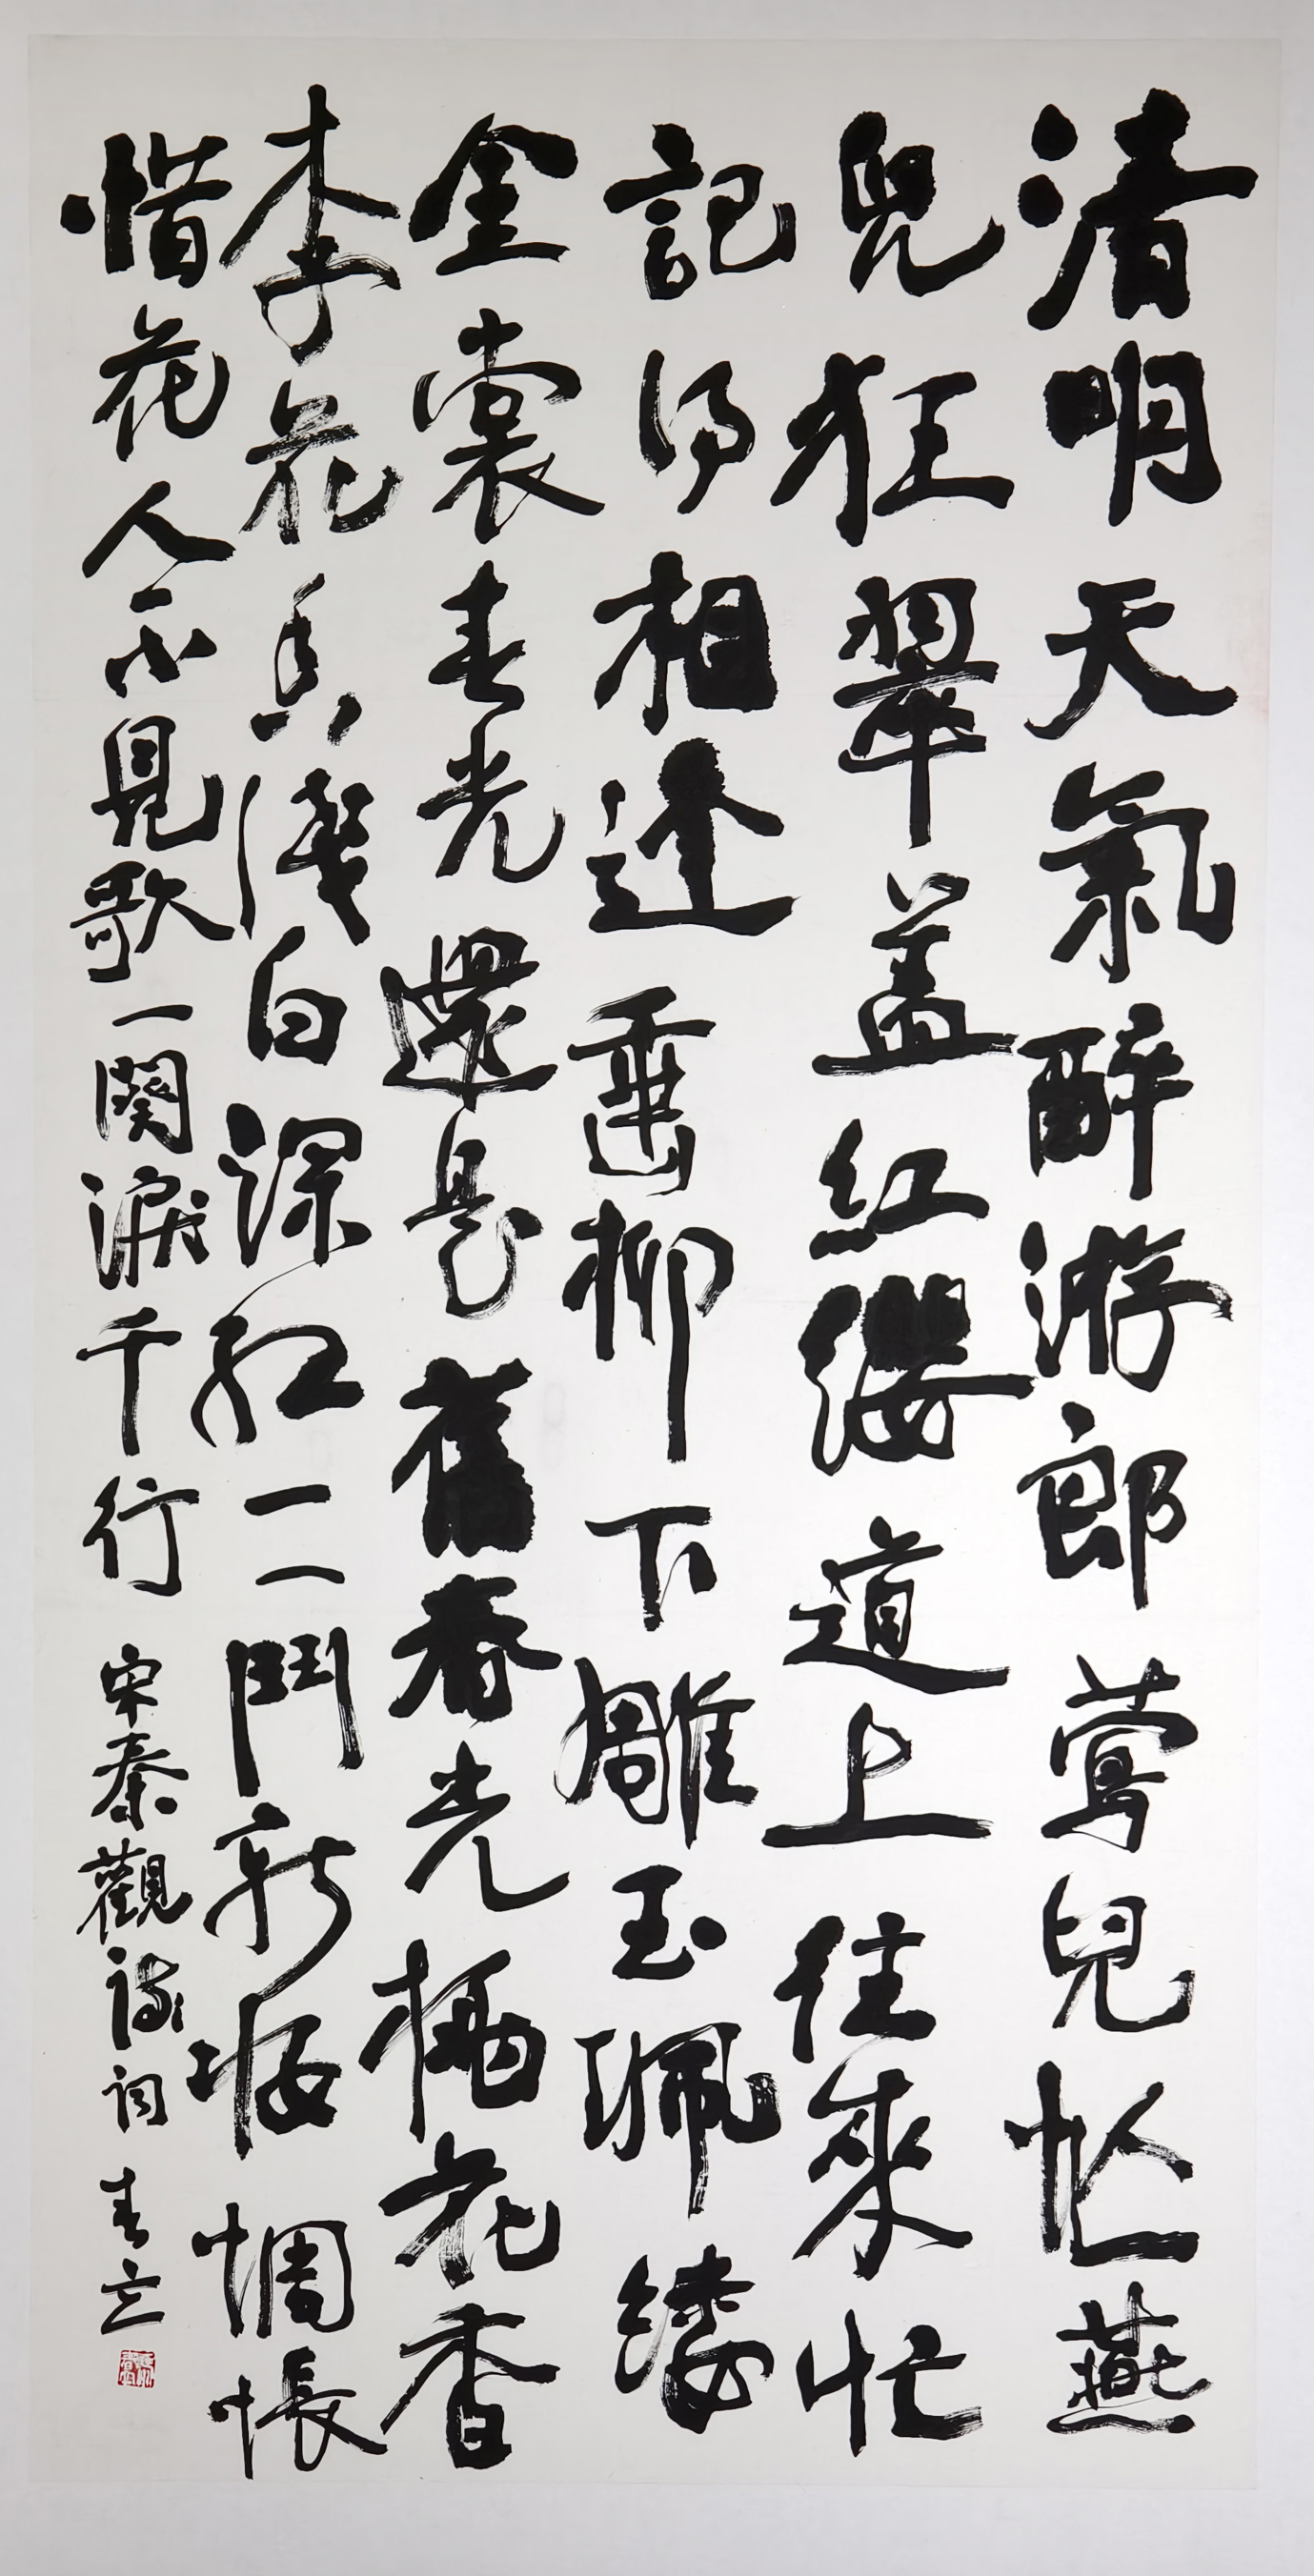 清明天氣醉游郎莺兒忙燕
兒狂翠盖紅纓道上往來忙
記得相逢垂柳下雕玉珮縷
金裳春光還是舊春光花香
李花香淺白深紅一一鬥新妝惆悵
惜花人不見歌一闋淚千行 宋秦觀詩詞 春立